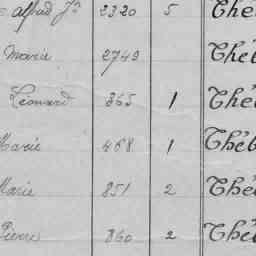 Alfred Jn 2320 5 Thé
Marie 2749 Thé
Léonard 365 1 Thé
Marie 468 1 Théb
Marie 851 2 Thé
Pierre 860 2 Thé